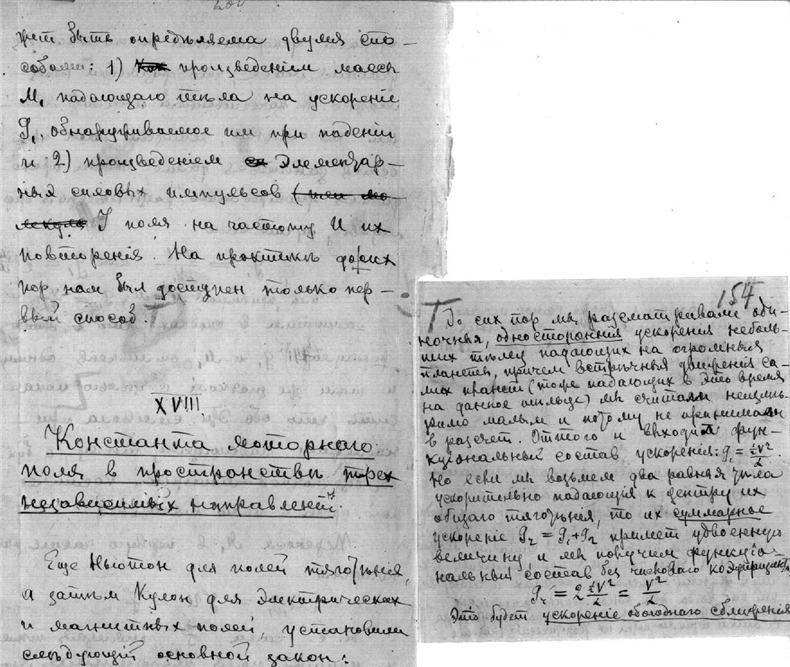 жет быть опредѣляема двумя спо-
собами: 1) произведеніем массы
M₁ падающаго тѣла на ускореніе
g₁, обнаруживаемое им при паденіи
и 2) произведеніем элементар-
ных силовых импульсов (или мо-
лекул) J поля на частоту n их
повторенія. На практикѣ до сих
пор нам был доступен только пер-
вый способ.
XVIII.
Константа моторнаго
поля в пространствѣ трех
независимых направленій.
Еще Ньютон для полей тяготѣнія,
а затѣм Кулон для электрических
и магнитных полей, установили
слѣдующій основной закон:
154
До сих пор мы разсматривали оди-
ночныя, односторонния ускорения неболь-
ших тѣлец падающих на огромныя
планеты, причем встрѣчныя движения са-
мых планет (тоже падающих в это время
на данное тѣльце) мы считали
малым и потому не принимали
в разсчет. Оттого и выходил функ-
ціональный состав ускоренія: g₁ = ½V²/r.
Но если мы возьмем два равныя тѣла
ускорительно падающія к центру их
общаго тяготѣнія, то их суммарное
ускореніе g₂ = g₁ + g₂ примет удвоенную
величину и мы получим функціо-
нальный состав без числоваго коэффиціента
g₂ = 2 ½V²/r = V²/r
Это будет ускореніе обоюднаго сближенія